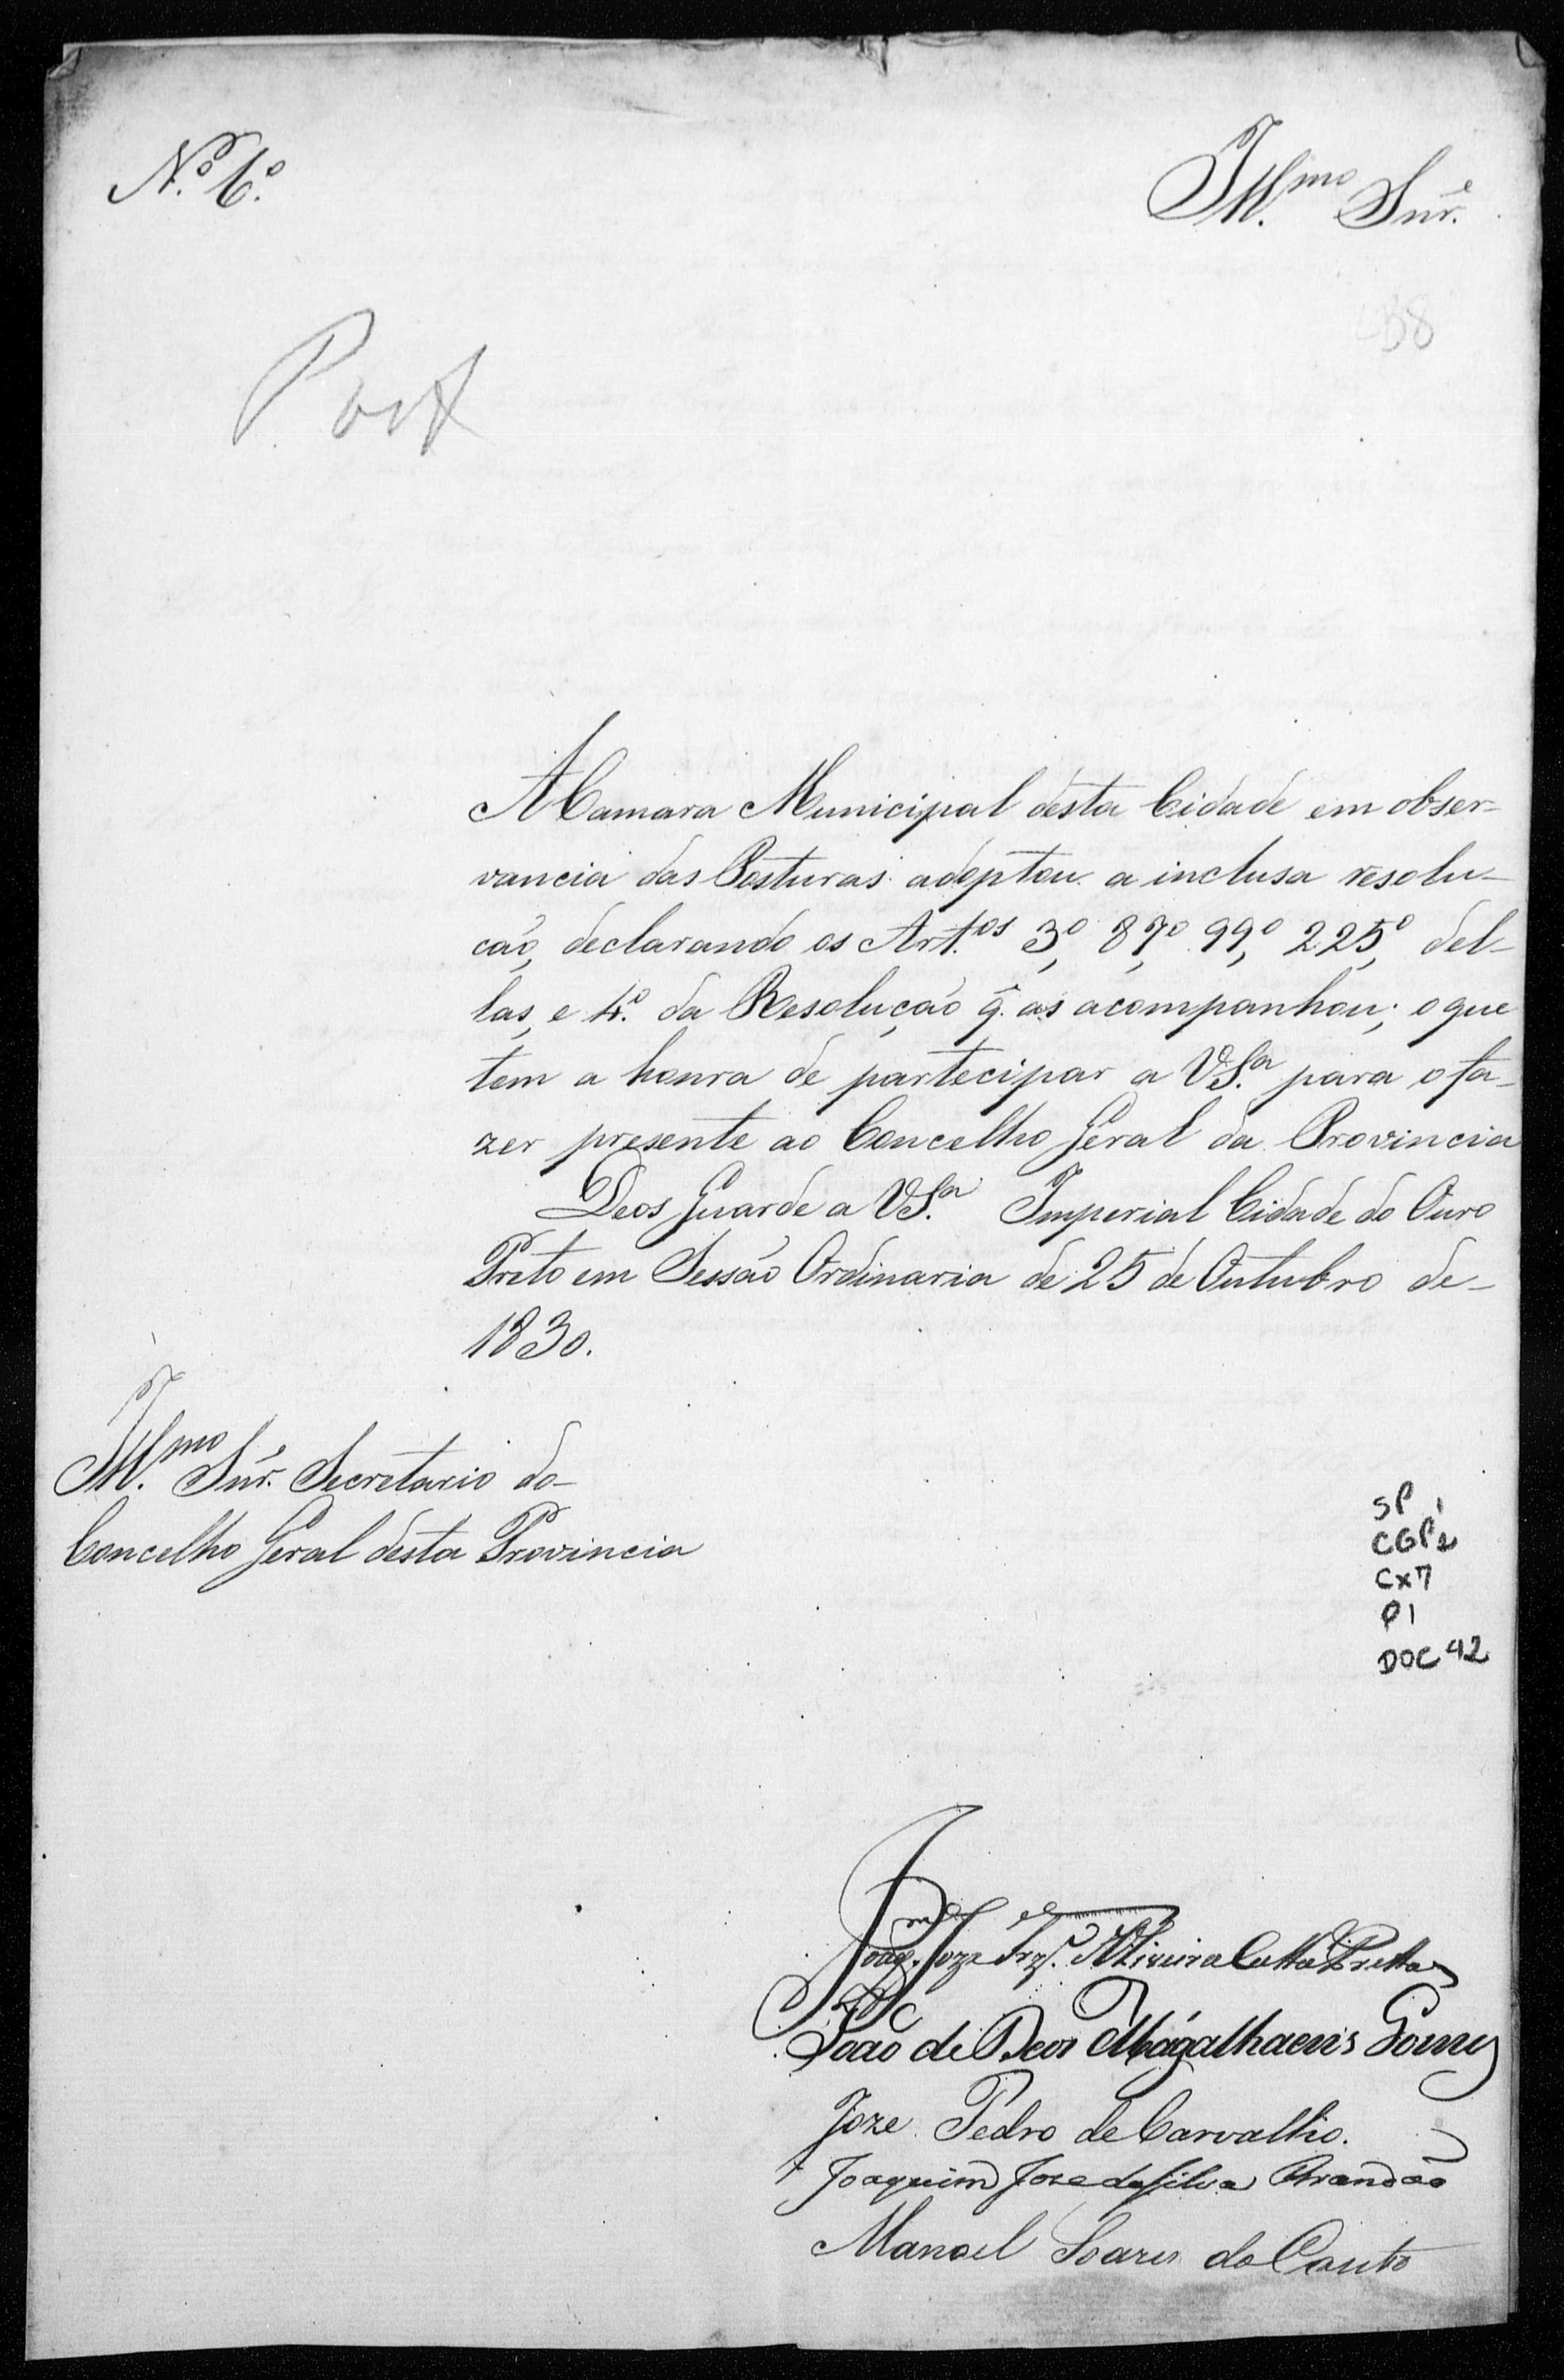 N.º 6.º
Ill.mo Snr.
Post
A Camara Municipal desta Cidade em obser-
vancia das Posturas adoptou a inclusa resolu-
ção, declarando os Art.os 3º, 87º, 99º, 225º, del-
las, e 4.º da Resolução q̃. as acompanhou; o que
tem a honra de partecipar a V.S.ª para o fa-
zer presente ao Concelho Geral da Provincia
Deos Guarde a V.S.ª Imperial Cidade do Ouro
Preto em Sessão Ordinaria de 25 de Outubro de-
1830.
Ill.mo Snr. Secretario do-
Concelho Geral desta Provincia
SP 1
CGP2
CX7
P1
DOC 42
Joaq.m Joze d'Oliveira Catta Pretta
João de Deos Magalhaens Gomes
Joze Pedro de Carvalho.
Joaquim Joze da Silva Brandão
Manoel Soares do Couto